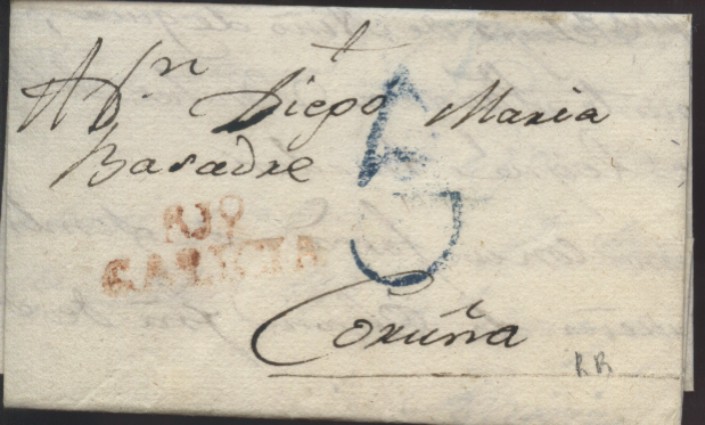 A Dn Diego Maria
Basadre
5
GALICIA
Coruña
RR